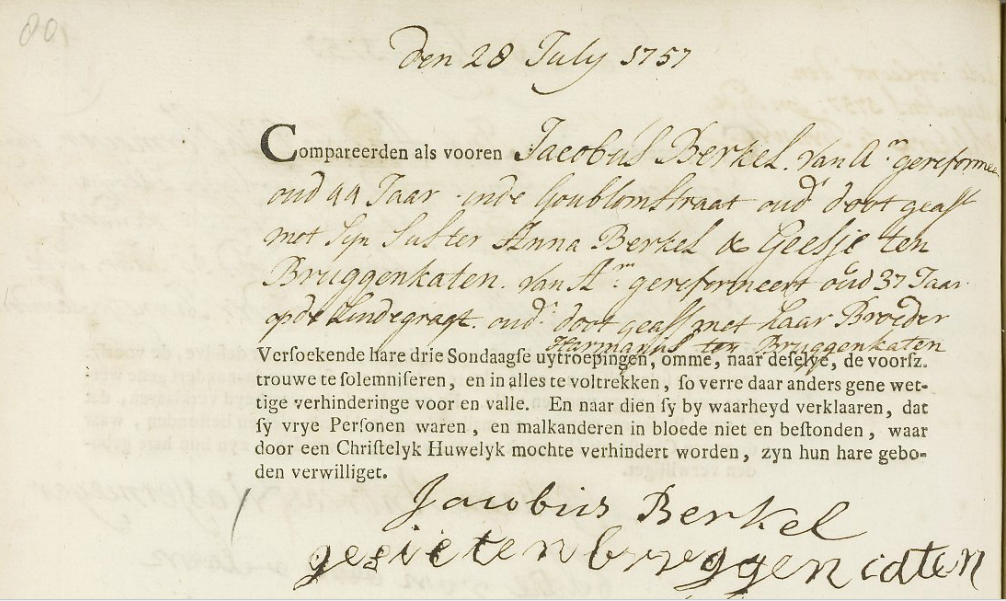 den 28 July 1757
Compareerden als vooren Jacobus Berkel. van Am. gereformee
oud 44 Jaar inde Goublomstraat oud.s doot geast
met syn Suster Anna Berkel & Geesje ten
Bruggenkaten. van Am. gereformeert oud 37 Jaar
op de Lindegragt. oud.s doot geast met haar Broeder
Hermanus ten Bruggenkaten
Versoekende hare drie Sondaagse uytroepingen, omme, naar deselve, de voorsz.
trouwe te solemniseren, en in alles te voltrekken, so verre daar anders gene wet-
tige verhinderinge voor en valle. En naar dien sy by waarheyd verklaaren, dat
sy vrye Personen waren, en malkanderen in bloede niet en bestonden, waar
door een Christelyk Huwelyk mochte verhindert worden, zyn hun hare gebo-
den verwilliget.
Jacobus Berkel